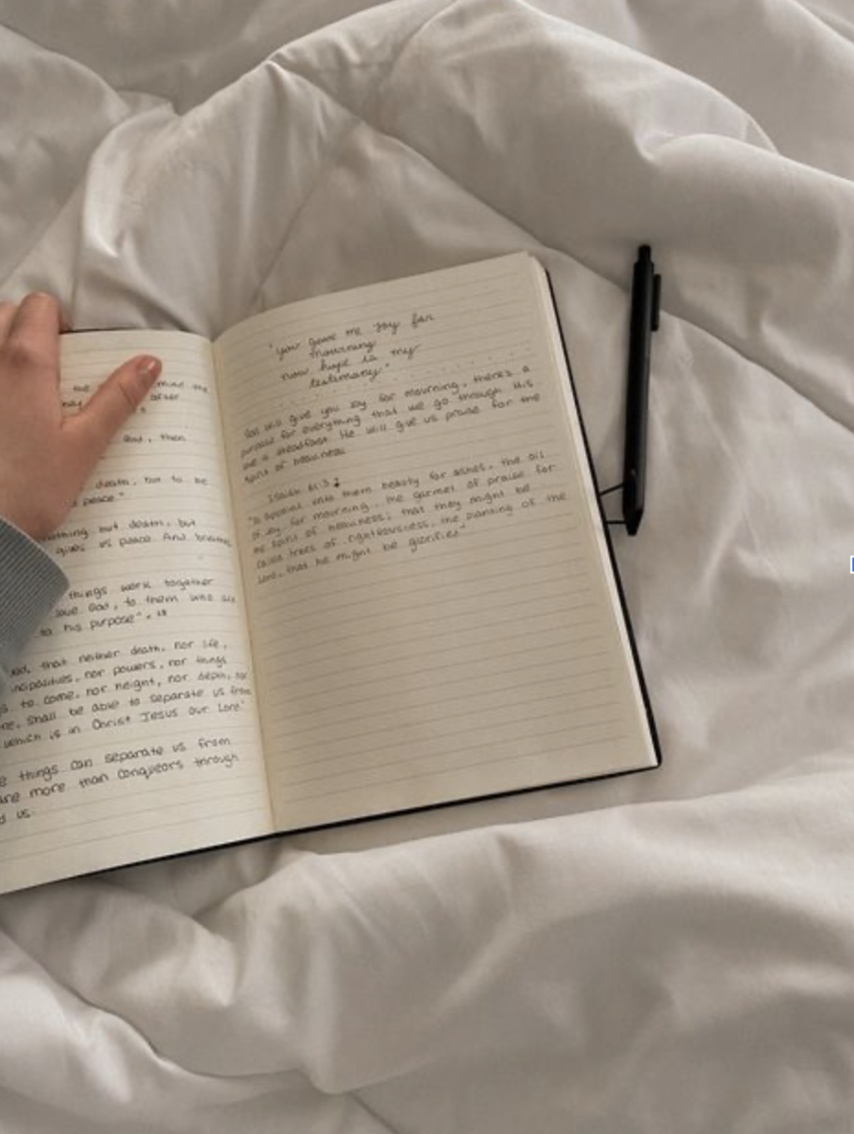 the mind the
may after
God, then
death, but to be
peace."
nothing but death, but
gives us peace. And
things work together
love God, to them who are
to his purpose" v. 28
that neither death, nor life,
incipalities, nor powers, nor things
s to come, nor height, nor depth, nor
re, shall be able to separate us from
which is in Christ Jesus our Lord"
e things can separate us from
are more than conquerors through
d us.
"you gave me joy for
mourning
now hope is my
testimony"
God will give you joy for mourning, there's a
purpose for everything that we go through. His
is steadfast. He will give us praise for the
spirit of heaviness
Isaiah 61:3
"To appoint unto them beauty for ashes, the oil
of joy for mourning, the garmet of praise for
the spirit of heaviness; that they might be
called trees of righteousness, the planting of the
Lord, that he might be glorified"